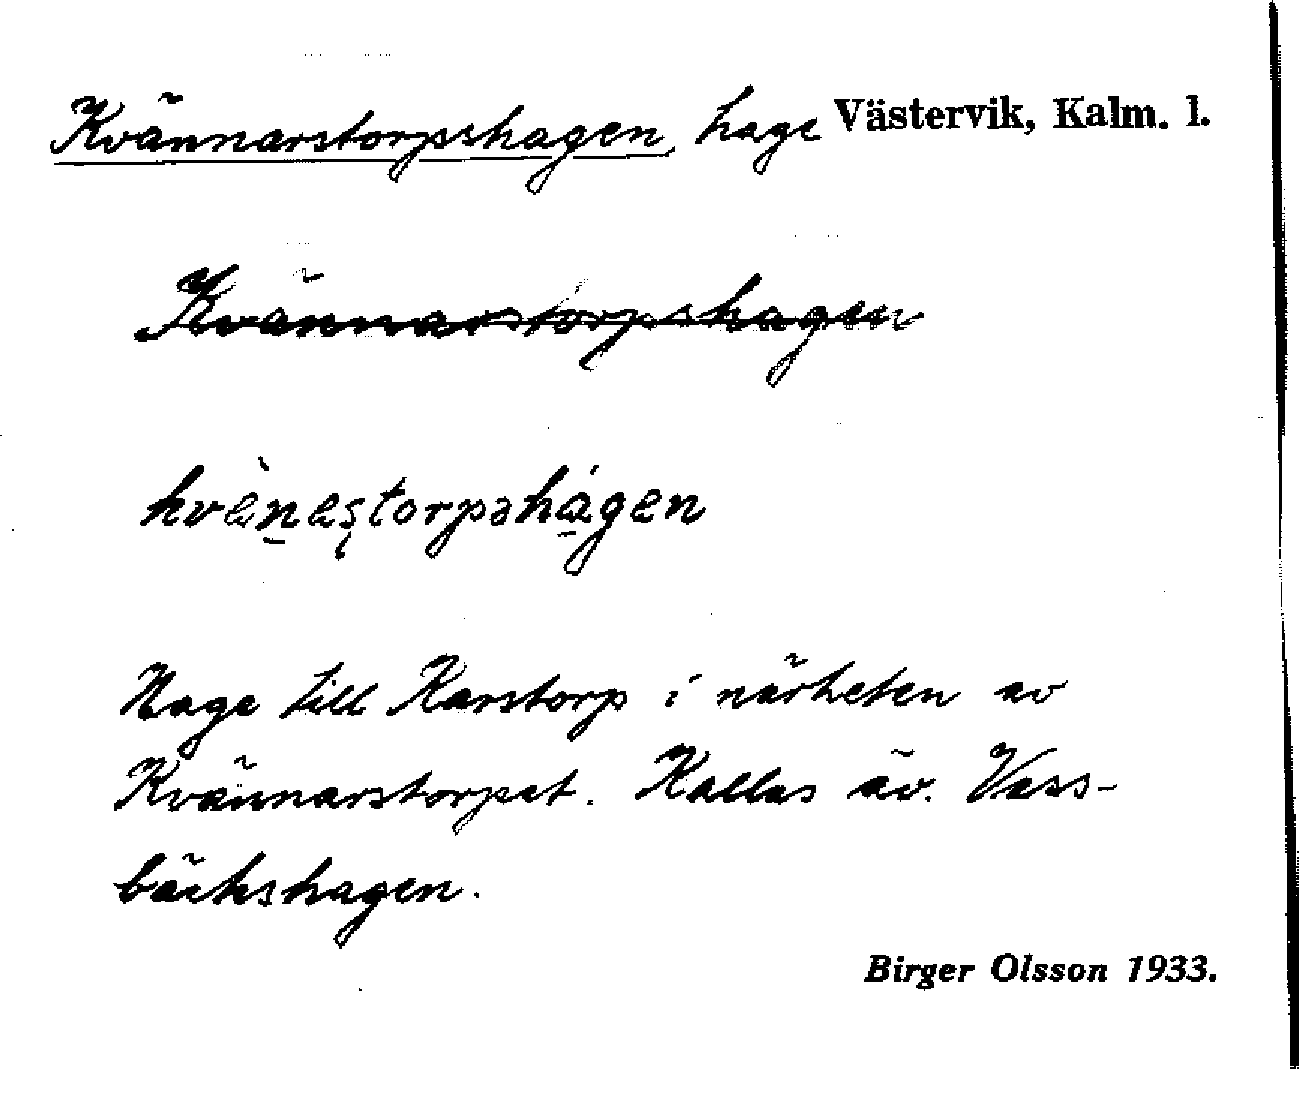 Kvännarstorpshagen, hage Västervik, Kalm. l.
Kvännarstorpshagen
kvὲnestorpshágen
Hage till Karstorp i närheten av
Kvännarstorpet. Kallas äv. Vass-
bäckshagen.
Birger Olsson 1933.